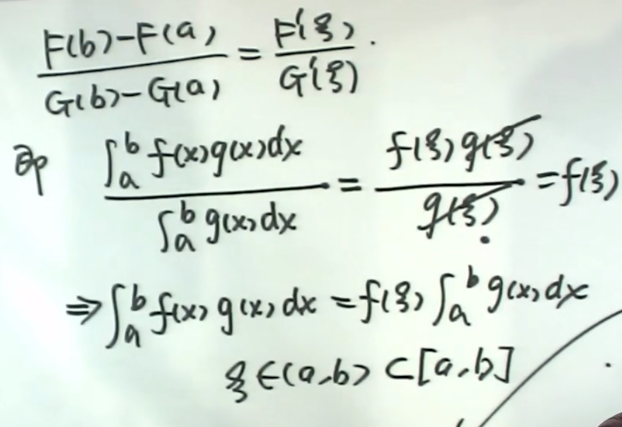 F(b)-F(a) / G(b)-G(a) = F'(ξ) / G'(ξ).
即 ∫_a^b f(x)g(x)dx / ∫_a^b g(x)dx = f(ξ)g(ξ) / g(ξ) = f(ξ)
⇒ ∫_a^b f(x)g(x)dx = f(ξ)∫_a^b g(x)dx
ξ∈(a,b)⊂[a,b]